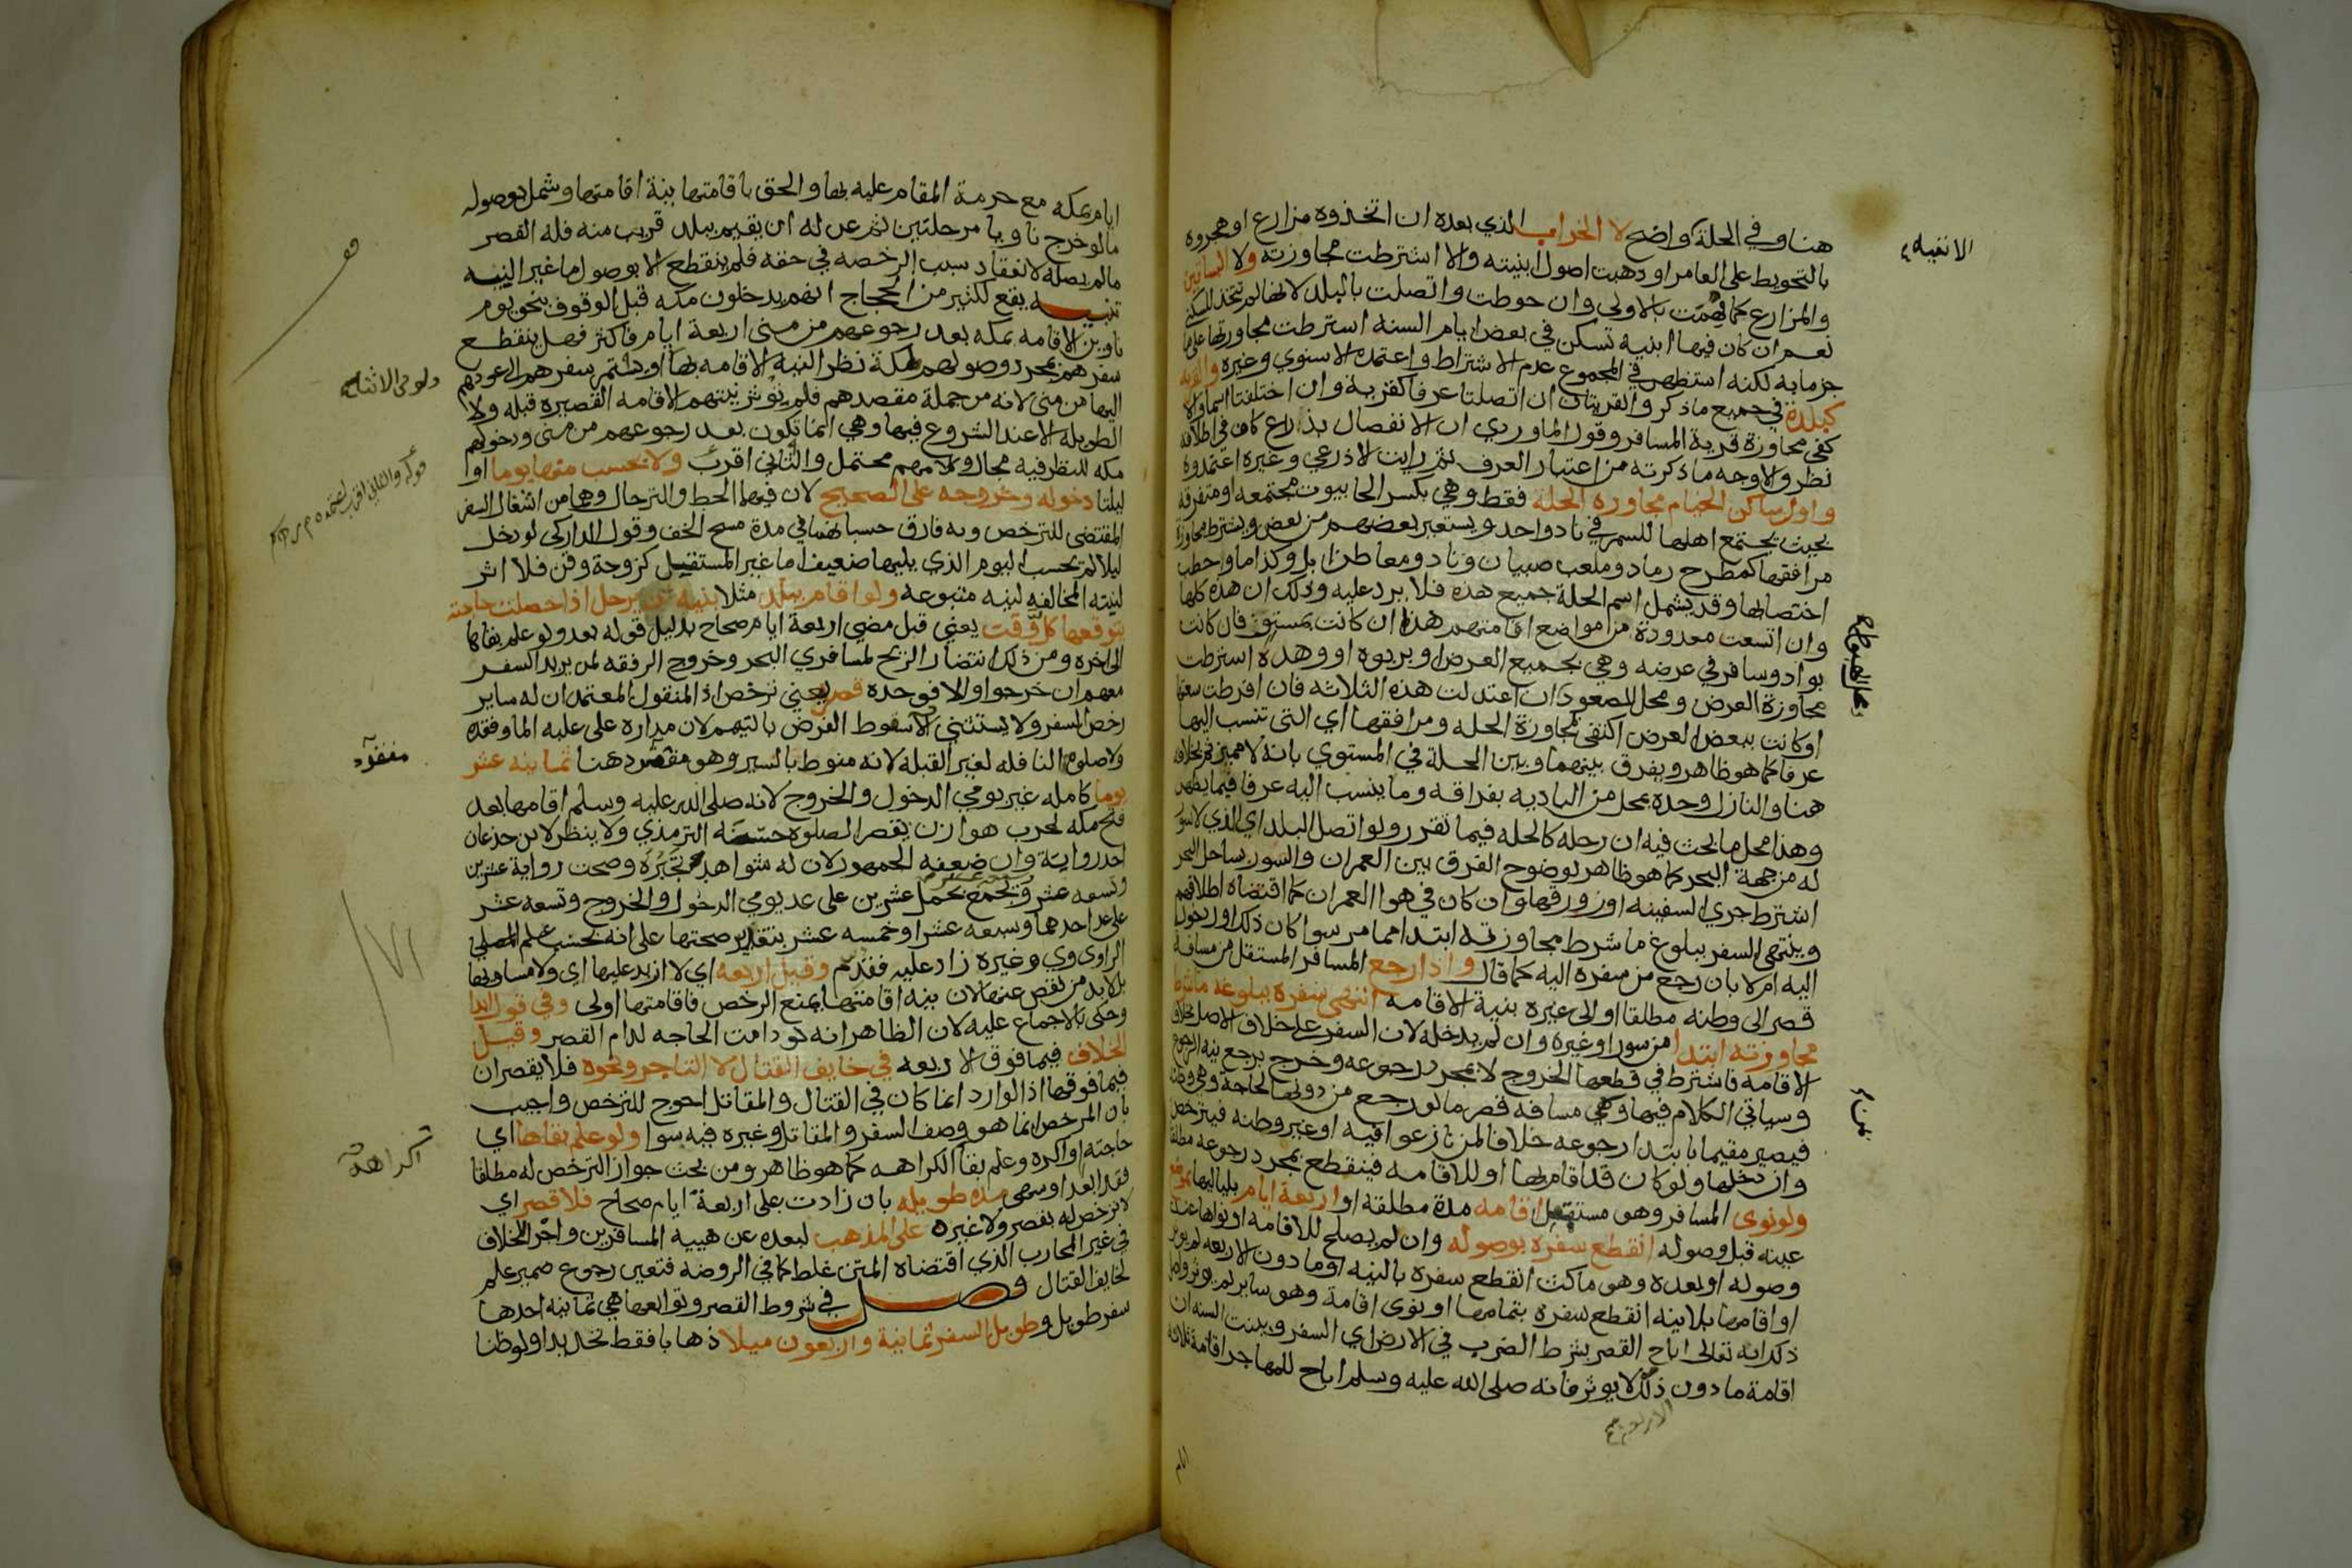 هنا وفي الحلة كما واضح لا الخراب الذي بعده ان اتخذوه مزارع او هجروه
بالتحويط على العامر او ذهبت اصول ابنيته والا اشترطت مجاوزته ولا البساتين
والمزارع كما فهمت بالاولى وان حوطت واتصلت بالبلد لانها لم تتخذ للسكنى
نعم ان كان فيها ابنية تسكن في بعض ايام السنة اشترطت مجاورتها على ما
جزما به لكنه استظهر في المجموع عدم الاشتراط واعتمده الاسنوي وغيره والقرية
كبلدة في جميع ما ذكر والقريتان ان اتصلتا عرفا كقرية وان اختلفتا اسما والا
كفى مجاوزة قرية المسافر وقول الماوردي ان الانفصال بذراع كاف في اطلاقه
نظر والاوجه ما ذكرته من اعتبار العرف ثم رايت الاذرعي وغيره اعتمدوه
واول ساكن الخيام مجاوزة الحلة فقط وهي بكسر الحا بيوت مجتمعه او متفرقة
بحيث يجتمع اهلها للسمر في ناد واحد ويستعير بعضهم من بعض ويشترط مجاوزة
مرافقها كمطرح رماد وملعب صبيان وناد ومعاطن ابل وكذا ما وحطب
اختصا بها وقد يشمل اسم الحلة جميع هذه فلا يرد عليه وذلك ان هذه كلها
وان اتسعت معدودة من مواضع اقامتهم هذا ان كانت بمستو فان كانت
بواد وسافر في عرضه وهي بجميع العرض او بربوه او وهدة اشترطت
مجاوزة العرض ومحل الصعود ان اعتدلت هذه الثلاثه فان افرطت سعتها
او كانت ببعض العرض اكتفى بمجاوزة الحله ومرافقها اي التي تنسب اليها
عرفا كما هو ظاهر ويفرق بينها وبين الحلة في المستوي بانه لا مميز ثم بخلافه
هنا والنازل وحده بمحل من الباديه بفراقه وما ينسب اليه عرفا فيما يظهر
وهذا محل ما بحث فيه ان رحله كالحله فيما تقرر ولو اتصل البلد اي الذي لا سور
له من جهة البحر كما هو ظاهر لوضوح الفرق بين العمران والسور بساحل البحر
اشترط جري السفينه او زورقها وان كان في هوا العمران كما اقتضاه اطلاقهم
وينتهي السفر ببلوغ ما شرط مجاوزته ابتدا مما مر سوا كان ذلك اول دخوله
اليه ام لا بان رجع من سفره اليه كما قال واذا رجع المسافر المستقل من مسافة
قصر الى وطنه مطلقا او الى غيره بنية الاقامه انتهى سفره ببلوغه ما شرط
مجاوزته ابتدا من سور او غيره وان لم يدخله لان السفر على خلاف الاصل بخلاف
الاقامه فاشترط في قطعها الخروج لا بمجرد رجوعه وخرج برجع نية الرجوع
وسياتي الكلام فيها وهي مسافه قصر ما لو رجع من دونها لحاجة وهي وطنه
فيصير مقيما بابتدا رجوعه خلافا لمن نازعوا فيه او غير وطنه فيترخص
وان دخلها ولو كان قد اقام بها او للاقامه فينقطع بمجرد رجوعه مطلقا
ولو نوى المسافر وهو مستقل اقامه مدة مطلقه او اربعة ايام بلياليها بموضع
عينه قبل وصوله انقطع سفره بوصوله وان لم يصلح للاقامه او نواها عند
وصوله او بعده وهو ماكث انقطع سفره بالنيه او ما دون الاربعة لم يوثر
او اقامها بلا نيه انقطع سفره بتمامها او نوى اقامة وهو ساير لم يوثر واصل
ذلك انه تعالى اباح القصر بشرط الضرب في الارض اي السفر وبينت السنه ان
اقامة ما دون ذلك لا يوثر فانه صلى الله عليه وسلم اباح للمهاجر اقامة ثلاثة
الاربع
الابنيه
ايام بمكه مع حرمة المقام عليه بها والحق باقامتها نية اقامتها وشمل بوصوله
ما لو خرج ناويا مرحلتين ثم عن له ان يقيم ببلد قريب منه فله القصر
ما لم يصله لانعقاد سبب الرخصه في حقه فلم ينقطع الا بوصول ما غير النيه
تنبيه يقع لكثير من الحجاج انهم يدخلون مكه قبل الوقوف بنحو يوم
ناوين الاقامه بمكه بعد رجوعهم من منى اربعة ايام فاكثر فهل ينقطع
سفرهم بمجرد وصولهم لمكة نظر النية الاقامه بها او يستمر سفرهم الى عودهم
اليها من منى لانه من جملة مقصدهم فلم يوثر نيتهم الاقامه القصيره قبله ولا
الطويله الا عند الشروع فيها وهي انما تكون بعد رجوعهم من منى ودخولهم
مكه للنظر فيه مجال وكلامهم محتمل والثاني اقرب ولا يحسب منها يوما او
ليلتا دخوله وخروجه على الصحيح لان فيهما الحط والترحال وهما من اشغال السفر
المقتضى للترخص وبه فارق حسبانهما في مدة مسح الخف وقول الداركي لو دخل
ليلا لم يحسب اليوم الذي يليها ضعيف اما غير المستقل كزوجة وقن فلا اثر
لنيته المخالفه لنية متبوعه ولو اقام ببلد مثلا بنية ان يرحل اذا حصلت حاجته
يتوقعها كل وقت يعني قبل مضي اربعة ايام صحاح بدليل قوله بعد ولو علم بقاها
الى اخره ومن ذلك انتظار الريح لمسافري البحر وخروج الرفقه لمن يريد السفر
معهم ان خرجوا والا فوحده قصر يعني ترخص اذ المنقول المعتمد ان له ساير
رخص السفر ولا يستثنى الا سقوط الفرض بالتيمم لان مداره على غلبه الما وفقده
ولا صلوة النافله لغير القبلة لانه منوط بالسير وهو مفقود هنا ثمانيه عشر
يوما كامله غير يومي الدخول والخروج لانه صلى الله عليه وسلم اقامها بعد
فتح مكه لحرب هوازن يقصر الصلوه حسنه الترمذي ولا ينظر لابن جذعان
احد رواته وان ضعفه الجمهور لان له شواهد تجبره وصحت رواية عشرين
وتسعه عشر وجمع بحمل عشرين على عد يومي الدخول والخروج وتسعه عشر
على عد احدهما وسبعه عشر او خمسه عشر بتقدير صحتها على انه بحسب علم
الراوي وغيره زاد عليه فقدم وقيل اربعه اي لا ازيد عليها اي ولا مساويها
بل لا بد من نقص عنها لان نية اقامتها يمنع الرخص فاقامتها اولى وفي قول ابدا
وحكى بالاجماع عليه لان الظاهر انه لو دامت الحاجه لدام القصر وقيل
الخلاف فيما فوق الاربعه في خايف القتال لا التاجر ونحوه فلا يقصران
فيما فوقها اذ الوارد انما كان في القتال والمقاتل احوج للترخص واجيب
بان المرخص انما هو وصف السفر والمقاتل وغيره فيه سوا ولو علم بقاها اي
حاجته او اكره وعلم بقا الكراهه كما هو ظاهر ومن بحث جواز الترخص له مطلقا
فقد ابعد او سهى مدة طويله بان زادت على اربعة ايام صحاح فلا قصر اي
لا ترخص له بقصر ولا غيره على المذهب لبعده عن هيية المسافرين واجر الخلاف
في غير المحارب الذي اقتضاه المتن غلط كما في الروضه فتعين رجوع ضمير علم
لخايف القتال فصل في شروط القصر وتوابعها هي ثمانيه احدها
سفر طويل وطويل السفر ثمانية واربعون ميلا ذهابا فقط تحديدا ولو ظنا
مفقود
اكراهه